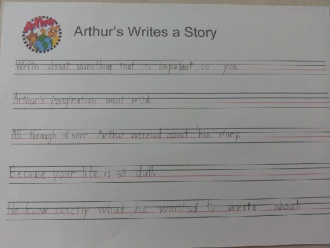 Arthur
Arthur's Writes a Story
Write about something that is important to you.
Arthur's imagination went wild.
All through dinner Arthur worried about his story.
Because your life is so dull.
He knew exactly what he wanted to write about